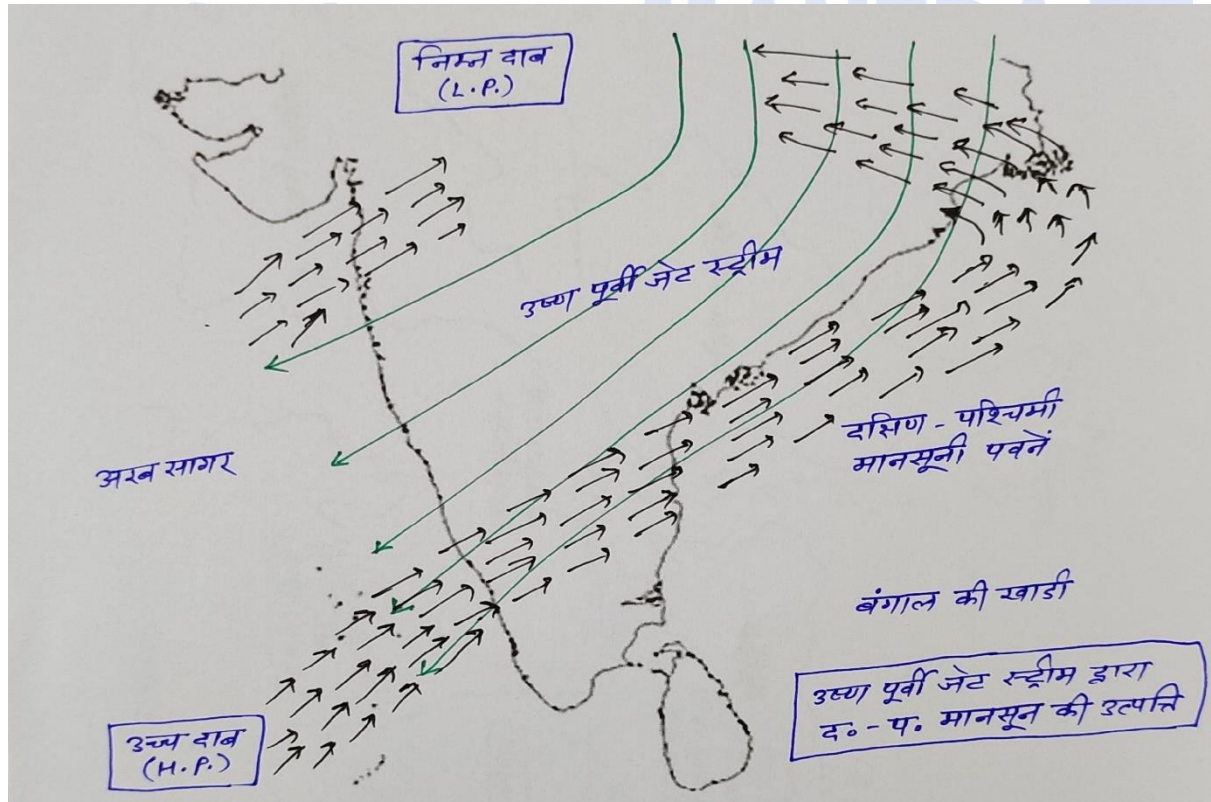 निम्न दाब
(L.P.)
उष्ण पूर्वी जेट स्ट्रीम
अरब सागर
दक्षिण - पश्चिमी
मानसूनी पवनें
बंगाल की खाडी
उच्च दाब
(H.P.)
उष्ण पूर्वी जेट स्ट्रीम द्वारा
द॰-प॰ मानसून की उत्पत्ति